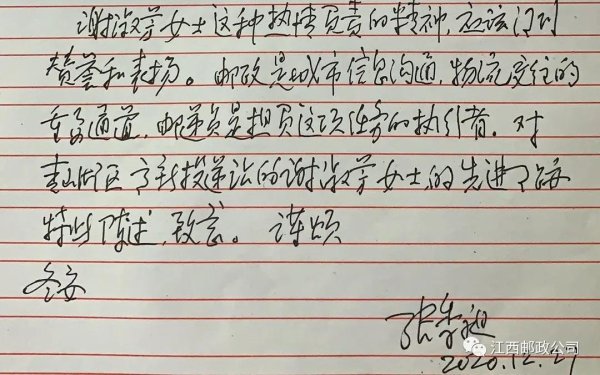 谢淑芳女士这种热情负责的精神,应该得到
赞誉和表扬。邮政是城市信息沟通,物流交往的
重要通道,邮递员是担负这项任务的执行者。对
青山湖区 投递站的谢淑芳女士的先进
特此陈述,致意。谨颂
冬安
张
2020.12.21
江西邮政公司